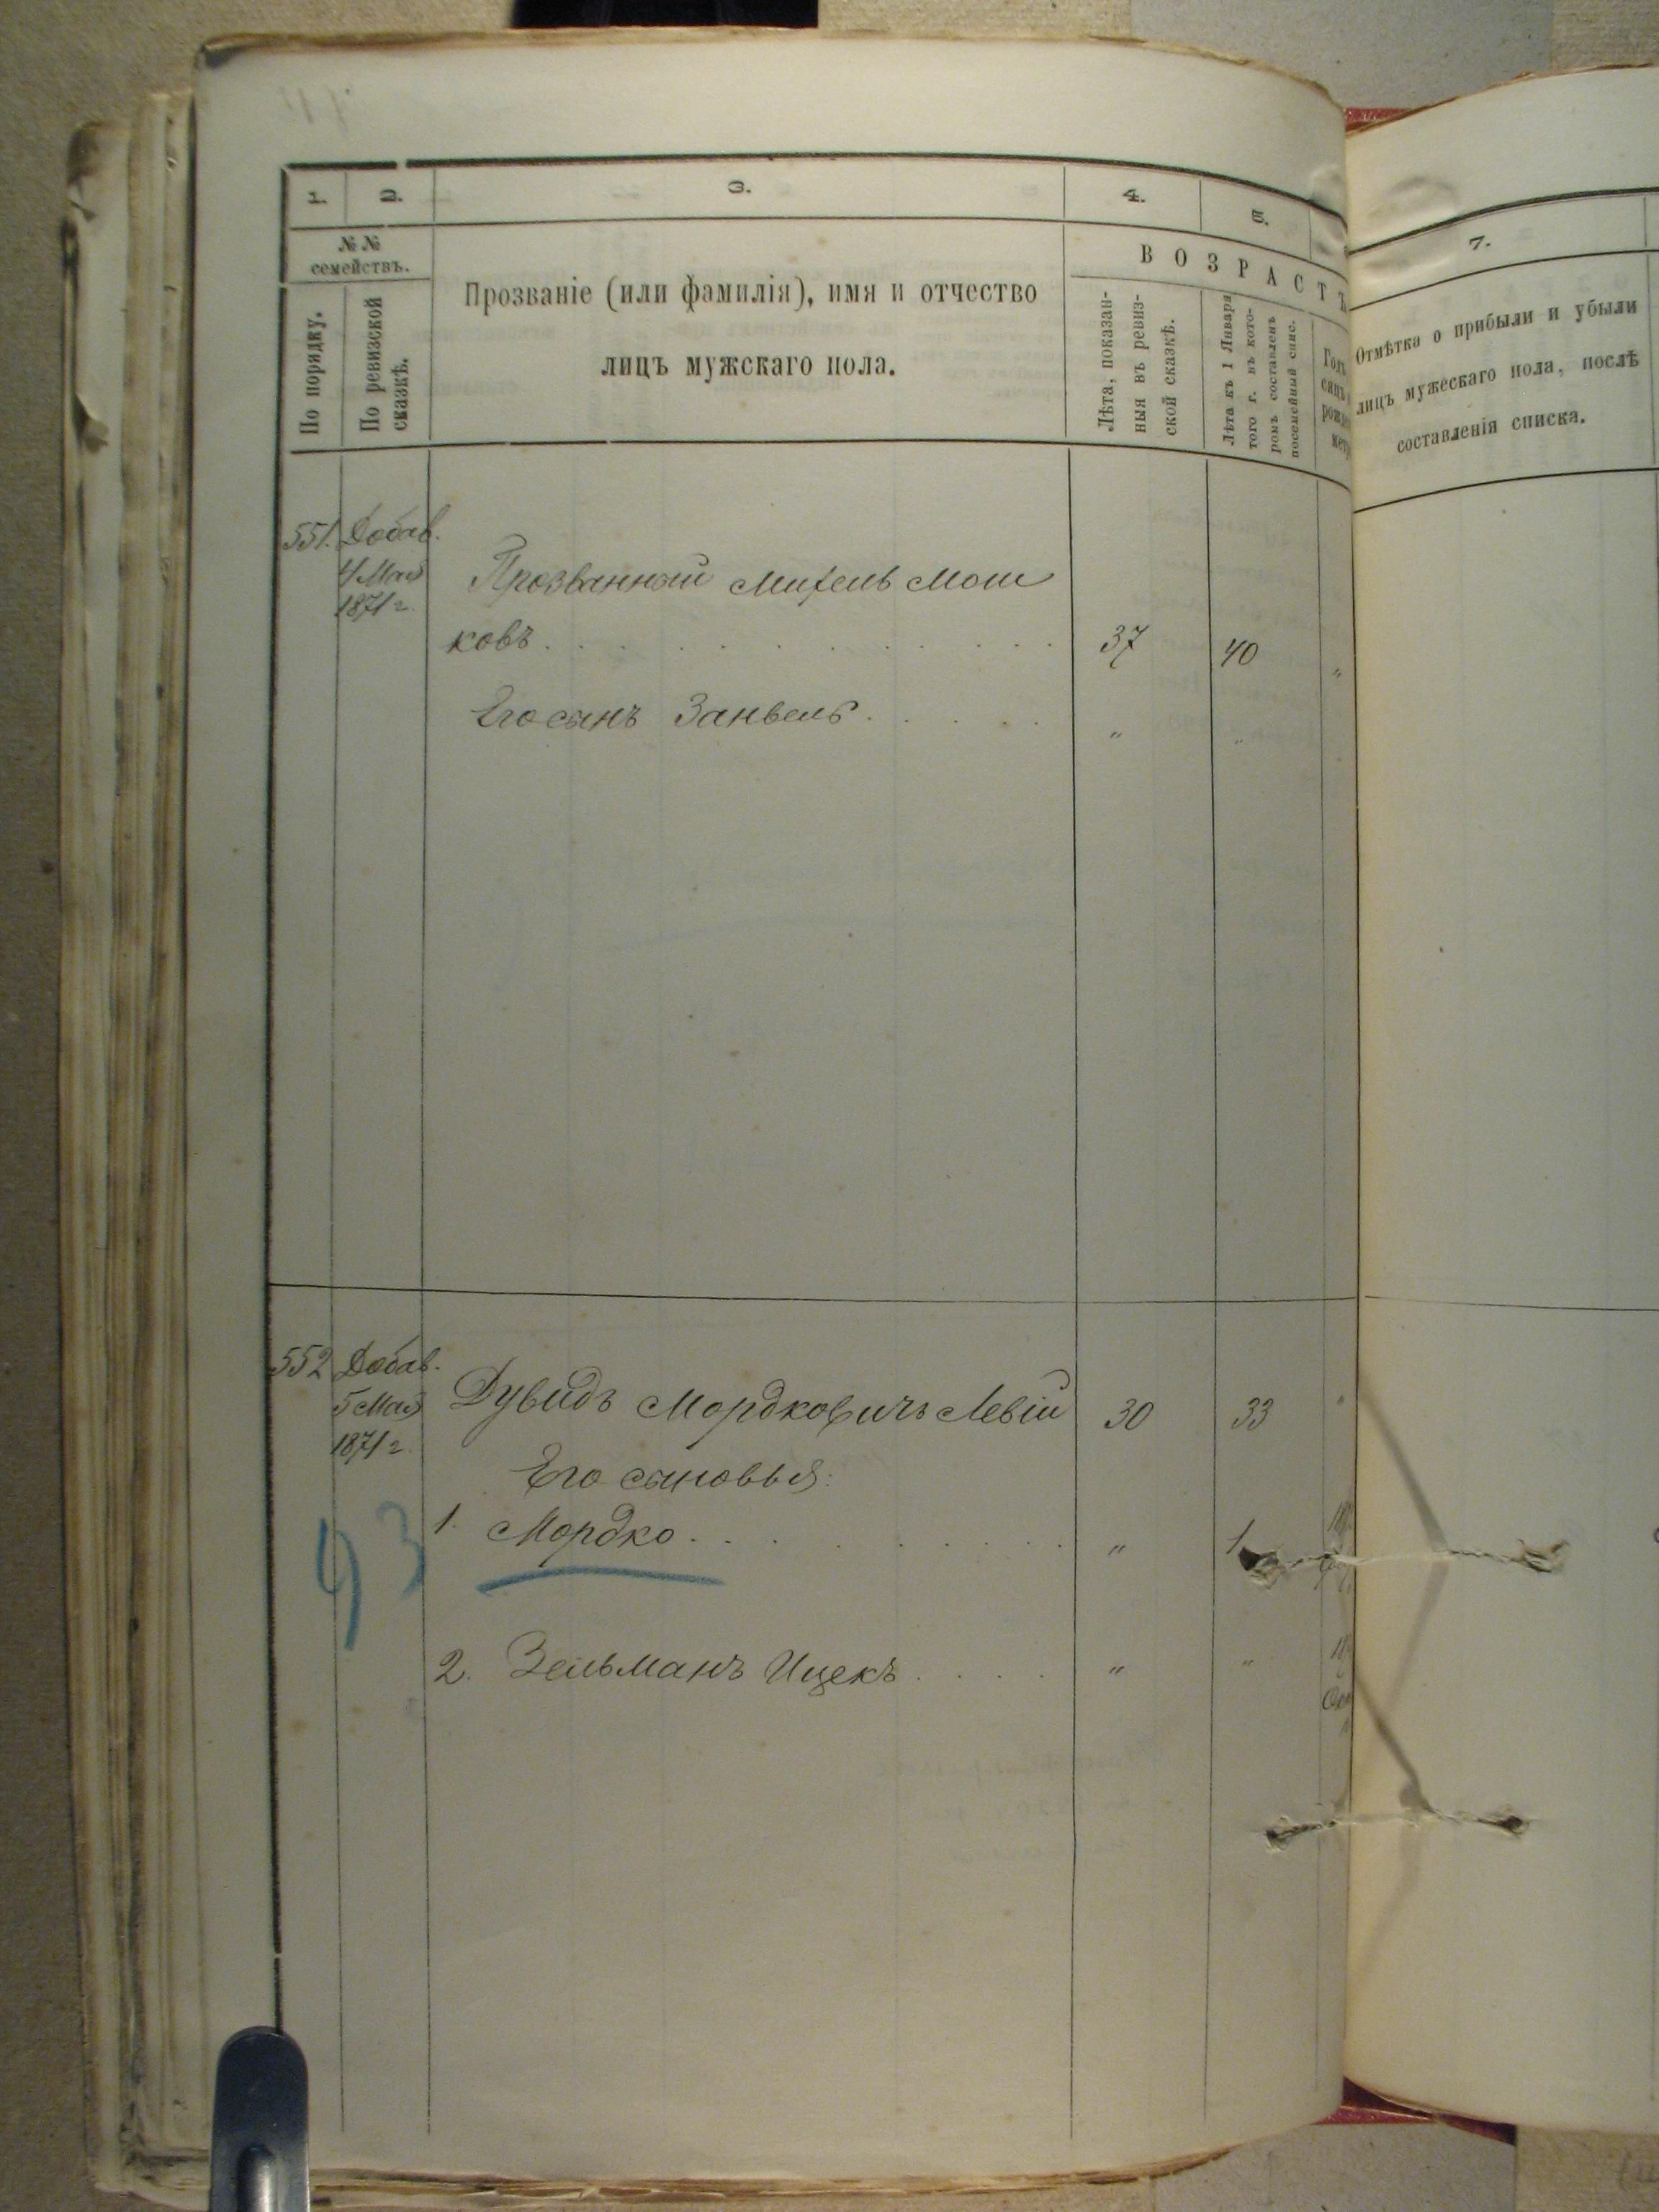 1.
2.
3.
4.
5.
7.
№ №
семействъ.
По порядку.
По ревизской
сказкѣ.
Прозваніе (или фамилія), имя и отчество
лицъ мужскаго пола.
ВОЗРАСТЪ
Лѣта, показан-
ныя въ ревиз-
ской сказкѣ.
Лѣта къ 1 Января
того г. въ кото-
ромъ составленъ
посемейный спис.
Отмѣтка о прибыли и убыли
лицъ мужескаго пола, послѣ
составленія списка.
551. Добав.
4 Мая
1871 г.
Прозванный Михель Мош
ковъ . . . . . . . . . . 37 40 „
Его сынъ Занвель . . . . . „ „
552 Добав.
5 Мая
1871 г.
Дувидъ Мордковичъ Левій 30 33 „
Его сыновья:
1. Мордко . . . . . . . . . „ 1
93
2. Зельманъ Ицекъ . . . . „ „